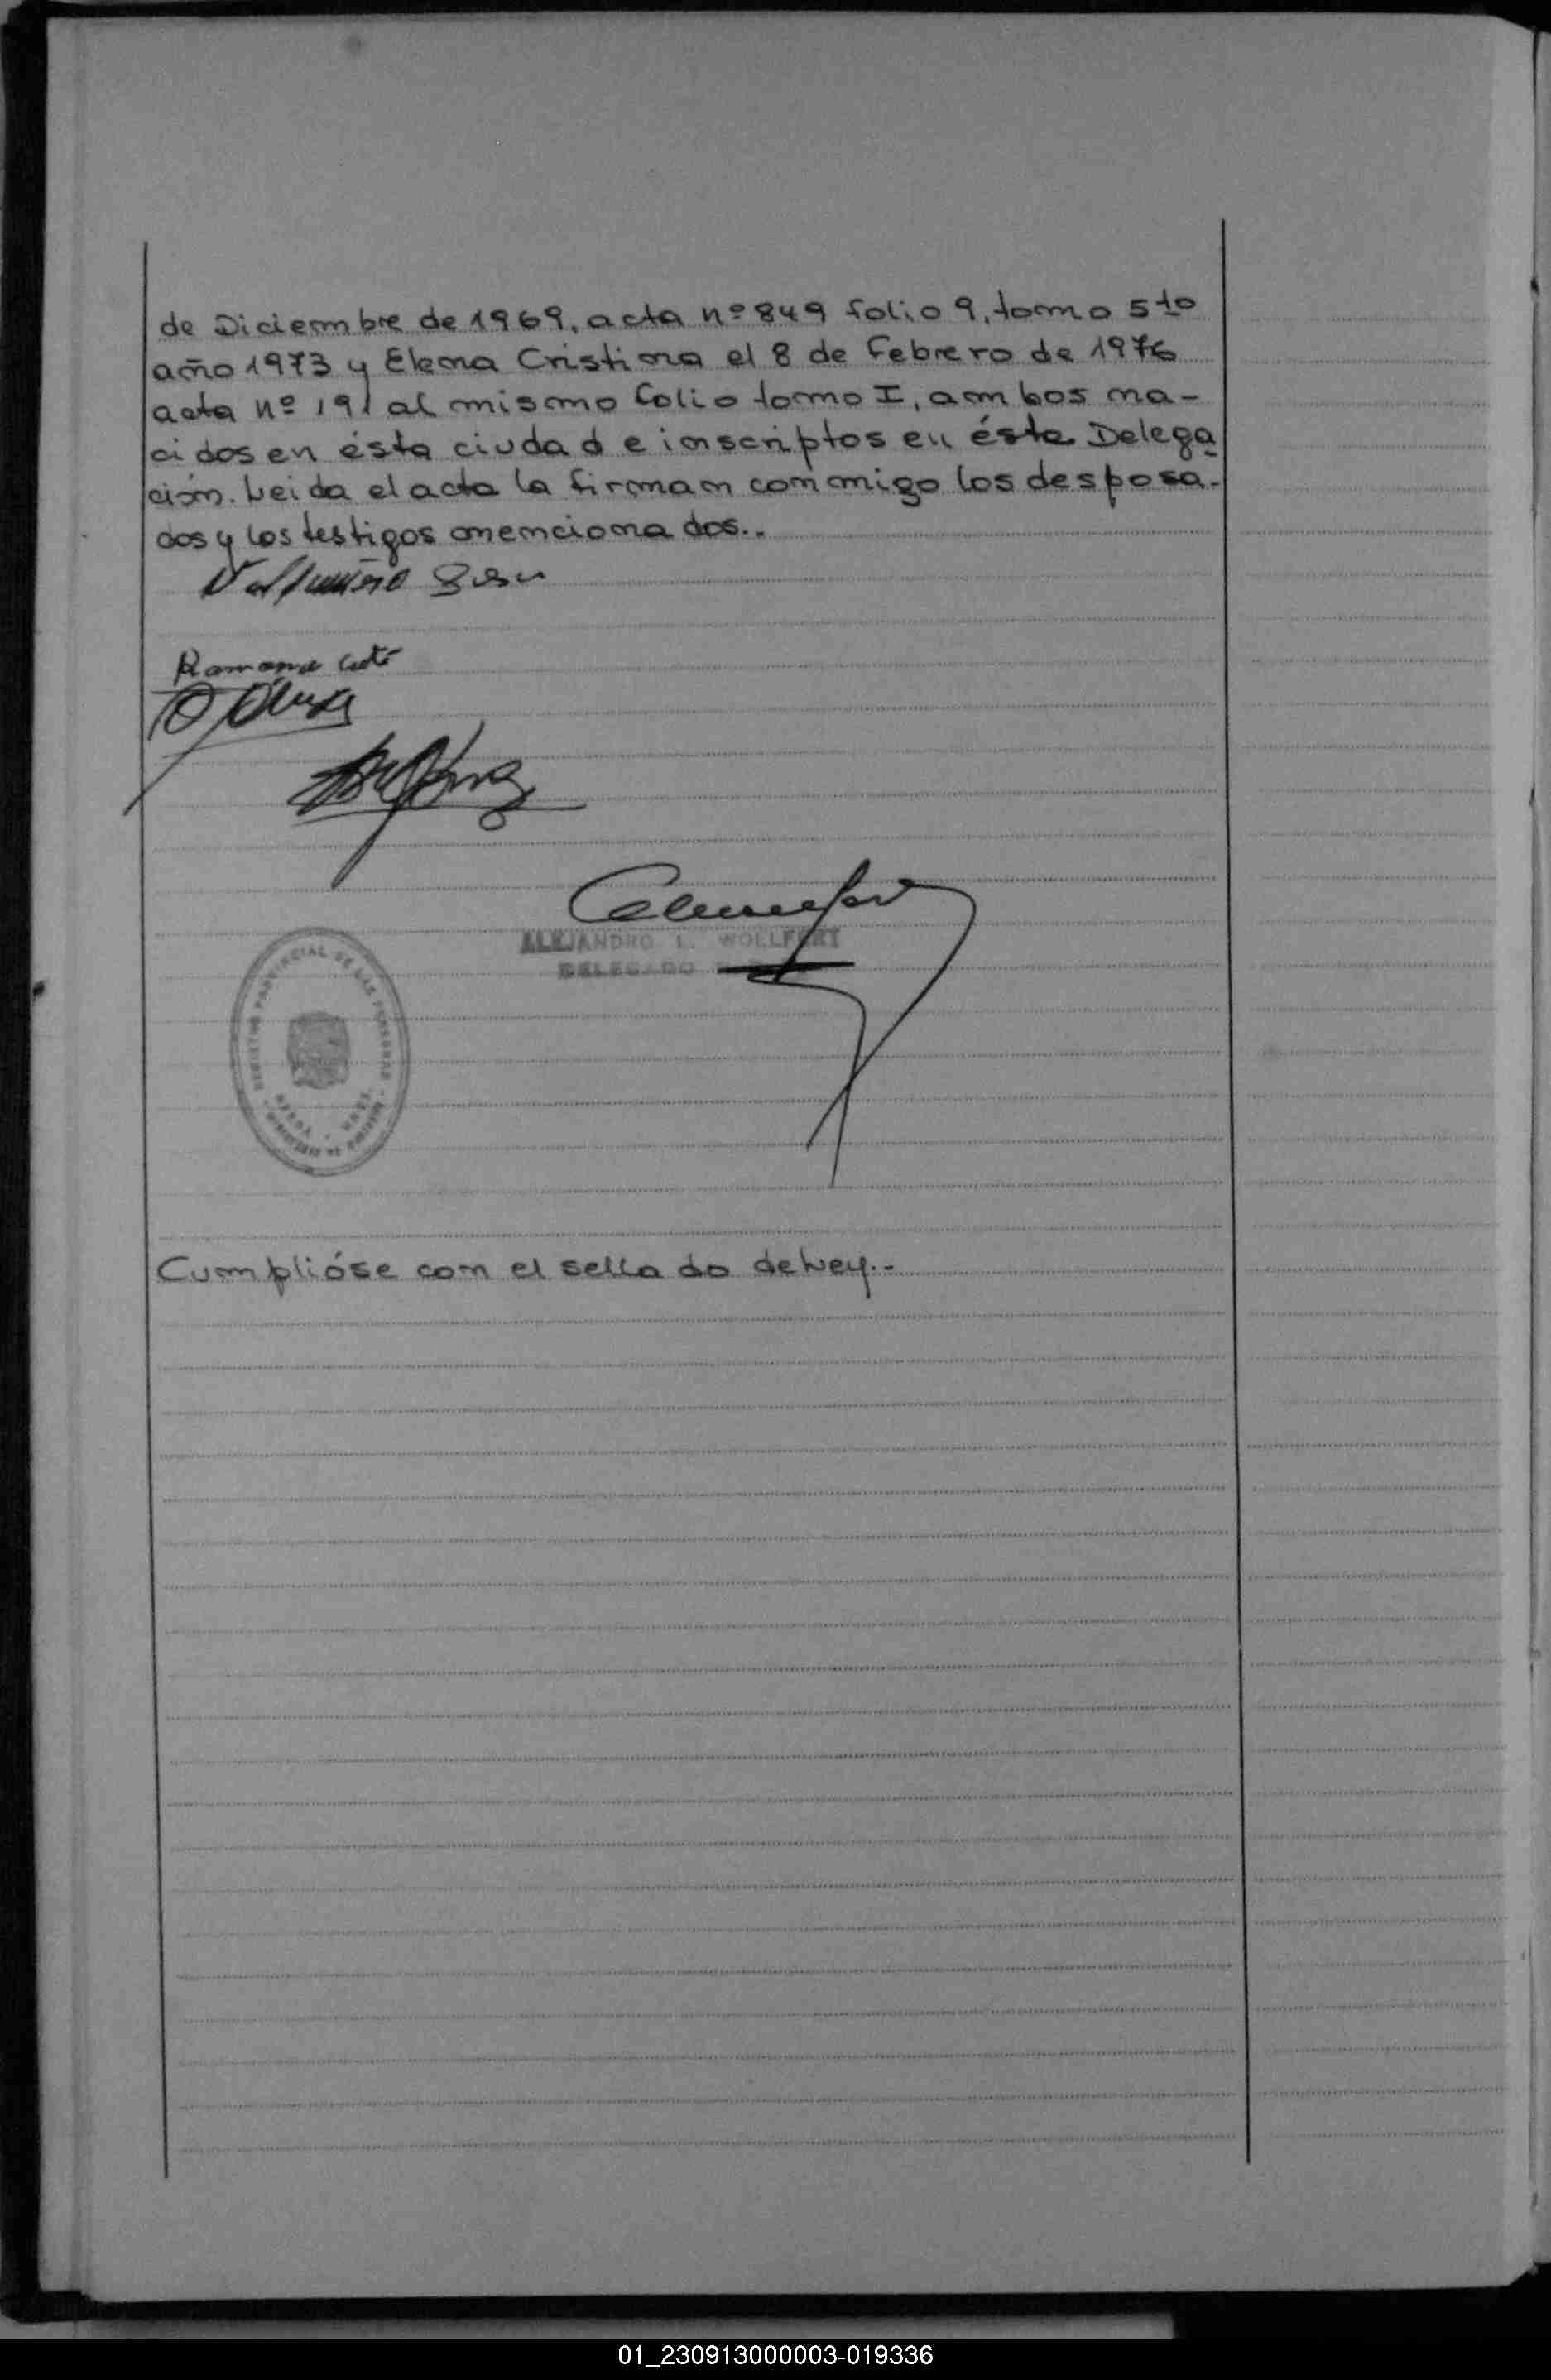 de Diciembre de 1969, acta nº 849 folio 9, tomo 5to
año 1973 y Elena Cristina el 8 de Febrero de 1976
acta nº 191 al mismo folio tomo I, ambos na-
cidos en ésta ciudad e inscriptos en ésta Delega
ción. Leida el acta la firman conmigo los desposa-
dos y los testigos mencionados..
Ramona
ALEJANDRO L. WOLLFERT
DELEGADO
REGISTRO PROVINCIAL DE LAS PERSONAS
Cumplióse con el sellado de Ley..
01_230913000003-019336